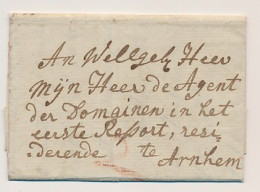 An Wellgeb Heer
Mijn Heer de Agent
der Domainen in het
eerste Ressort, resi
:derende te
Arnhem